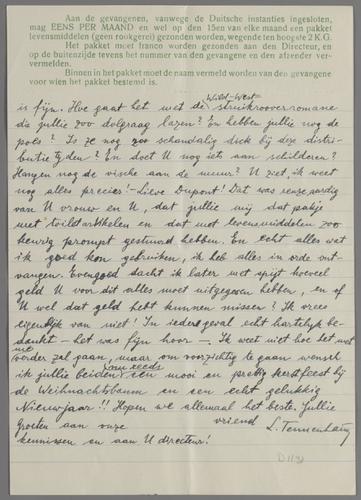 Aan de gevangenen, vanwege de Duitsche instanties ingesloten,
mag EENS PER MAAND en wel op den 15en van elke maand een pakket
levensmiddelen (geen rookgerei) gezonden worden, wegende ten hoogste 2 K.G.
Het pakket moet franco worden gezonden aan den Directeur, en
op de buitenzijde tevens het nummer van den gevangene en den afzender ver-
vermelden.
Binnen in het pakket moet de naam vermeld worden van den gevangene
voor wien het pakket bestemd is.
Wild-West
is fijn. Hoe gaat het met de struikrooverromane
die jullie zoo dolgraag lazen? En hebben jullie nog de
poes? Is ze nog zoo schandalig dick bij deze distri-
butie tijden? En doet U nog iets aan schilderen?
Hangen nog de vische aan de muur? U ziet, ik weet
nog alles precies! - Lieve Dupont! Dat was reuze aardig
van U vrouw en U, dat jullie mij dat pakje
met toiletartikelen en dat met levensmiddelen zoo
keurig prompt gestuurd hebben. En echt alles wat
ik goed kon gebruiken, ik heb alles in orde ont-
vangen. Evengoed dacht ik later met spijt hoeveel
geld U voor dit alles moet uitgegeven hebben, en of
U wel dat geld hebt kunnen missen? Ik vrees
eigenlijk van niet! In iedergeval echt hartelijk be-
dankt - het was fijn hoor -. Ik weet niet hoe het met
me
verder zal gaan, maar om voorzichtig te gaan wensch
ik jullie beiden een mooi en prettig kerstfeest bij
de Weihnachtsbaum en een echt gelukkig
Nieuwjaar!! Hopen we allemaal het beste. Jullie
vriend
Groeten aan onze
kennissen en aan U directeur!